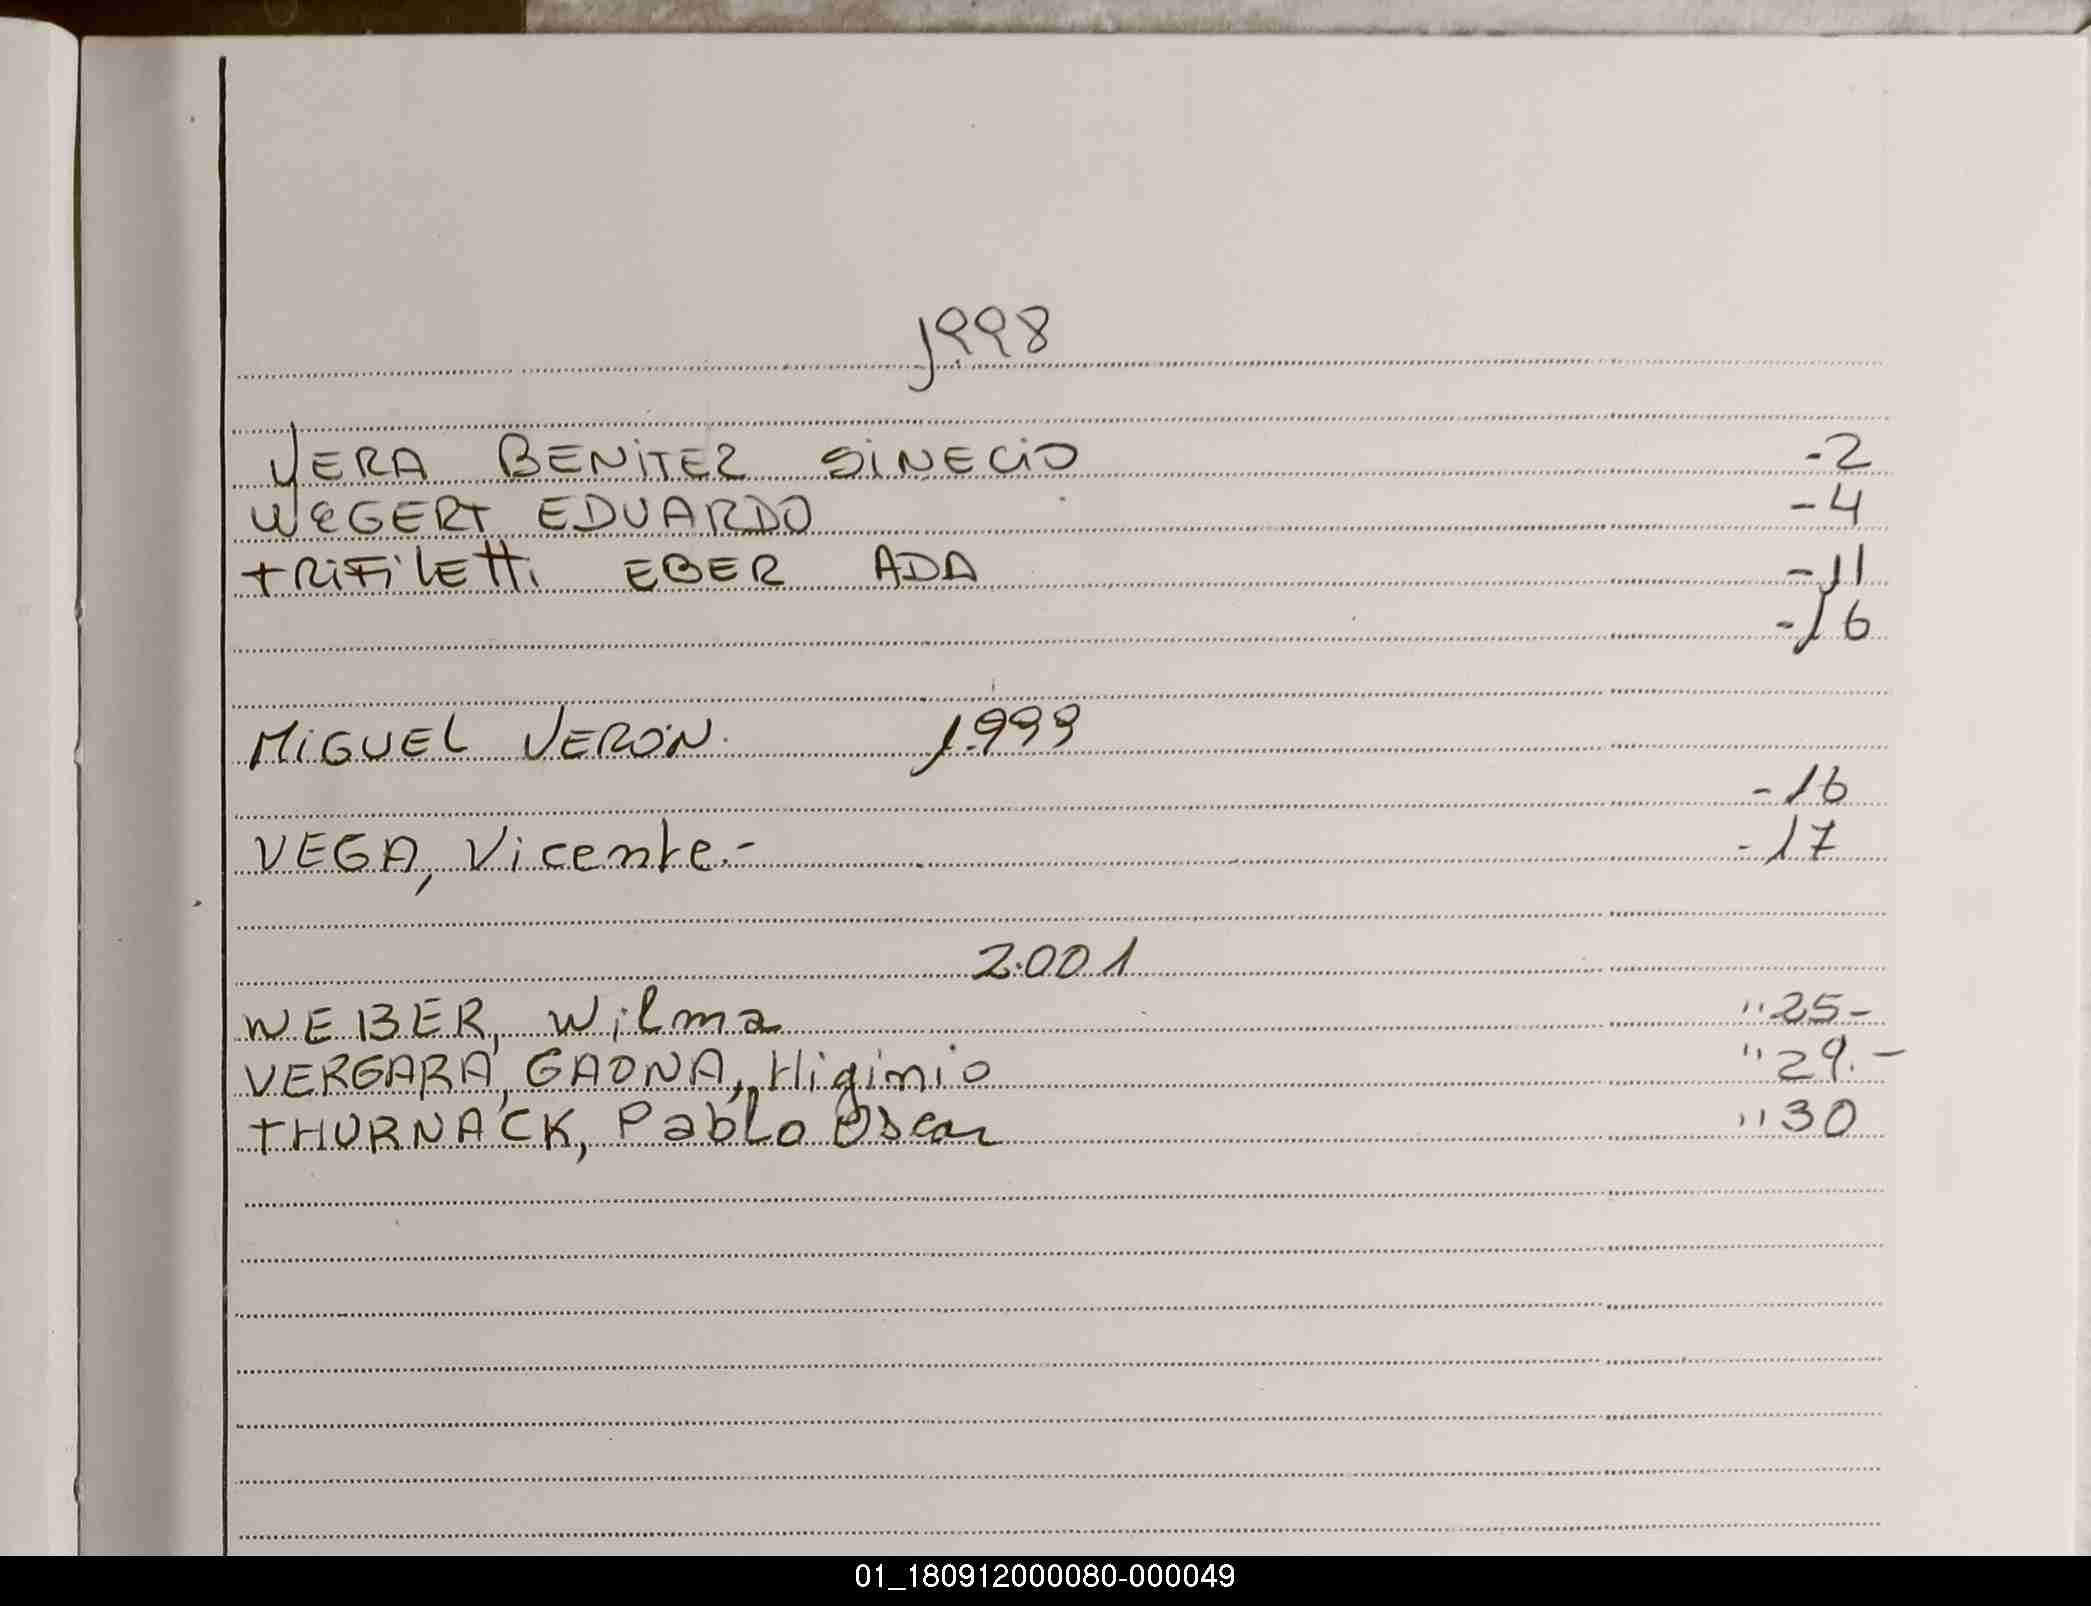 1998
VERA BENITEZ SINECIO -2
WEGERT EDUARDO -4
TRIFILETTI EBER ADA -11
-16
MIGUEL VERÓN. 1.999
-16
VEGA, Vicente.- -17
2.001
WEIBER, Wilma "25-
VERGARA, GAONA, Higinio "29.-
THURNACK, Pablo Oscar "30
01_180912000080-000049